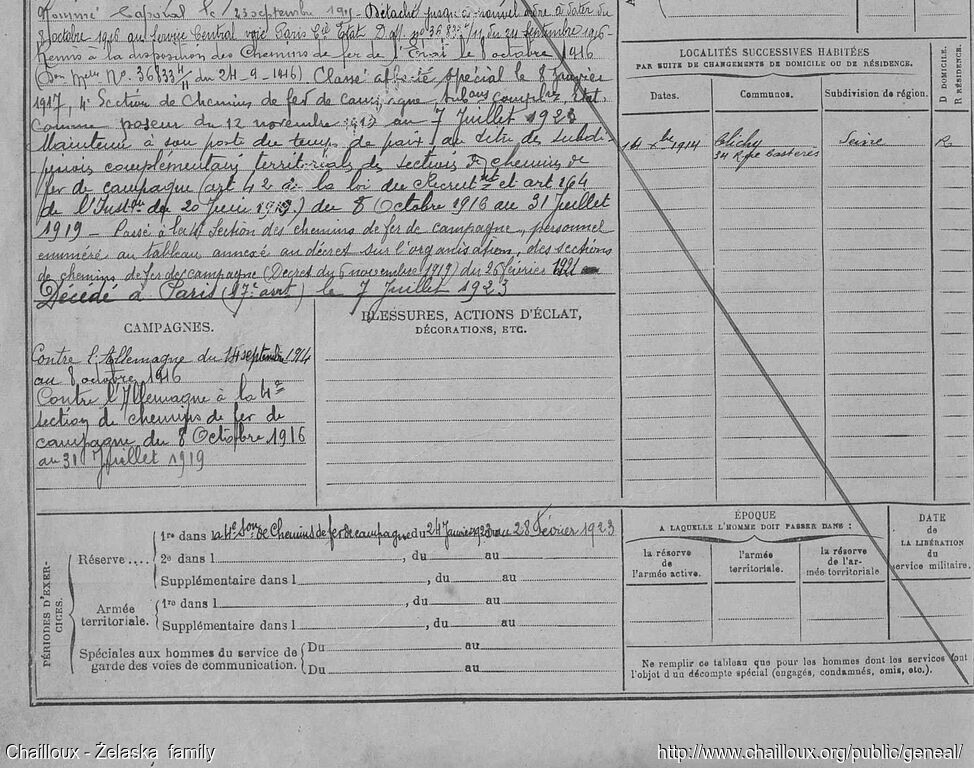 Nommé Caporal le 23 septembre 1915 - Détaché jusqu'à nouvel ordre à dater du
8 octobre 1916 au Service Central voie Paris Ch. Etat D. M. n° 36.833 1/11 du 24 septembre 1916 -
Remis à la disposition des Chemins de fer de l'Etat le 8 octobre 1916
(Don Melle No. 36833 1/11 du 24-9-1916) Classé affecté spécial le 8 Janvier
1917, 4e Section de Chemins de fer de campagne, Subons complres, Etat,
comme poseur du 12 novembre 1913 au 7 Juillet 1923
Maintenu à son poste du temps de paix au titre de subdi-
visions complémentaires territoriales de sections de chemins de
fer de campagne (art 42 de la loi du Recrutnt et art 164
de l'Instr. du 20 Juin 1913) du 8 Octobre 1916 au 31 Juillet
1919 - Passé à la 4e Section des chemins de fer de campagne, personnel
énuméré au tableau annexé au décret sur l'organisation, des sections
de chemins de fer de campagne (Decret du 6 novembre 1919) du 26 février 1921
Décédé à Paris (17e arrt) le 7 Juillet 1923
CAMPAGNES.
Contre l'Allemagne du 14 septembre 1914
au 8 octobre 1916
Contre l'Allemagne à la 4e
section de chemins de fer de
campagne du 8 Octobre 1916
au 31 Juillet 1919
BLESSURES, ACTIONS D'ÉCLAT,
DÉCORATIONS, ETC.
LOCALITÉS SUCCESSIVES HABITÉES
PAR SUITE DE CHANGEMENTS DE DOMICILE OU DE RÉSIDENCE.
D DOMICILE.
R RÉSIDENCE.
Dates. Communes. Subdivision de région.
14 Xbre 1914 Clichy Seine R
34 Rue Casterès
PÉRIODES D'EXER-
CICES.
Réserve.... 1re dans la 4e Son de Chemins de fer de campagne du 24 Janvier 1923 au 28 Février 1923
2e dans l , du au
Supplémentaire dans l , du au
Armée
territoriale.
1re dans l , du au
Supplémentaire dans l , du au
Spéciales aux hommes du service de
garde des voies de communication.
Du au
Du au
ÉPOQUE
A LAQUELLE L'HOMME DOIT PASSER DANS :
la réserve
de
l'armée active.
l'armée
territoriale.
la réserve
de l'ar-
mée territoriale
DATE
de
LA LIBÉRATION
du
service militaire.
Ne remplir ce tableau que pour les hommes dont les services font
l'objet d'un décompte spécial (engagés, condamnés, omis, etc.).
Chailloux - Želaska family
http://www.chailloux.org/public/geneal/